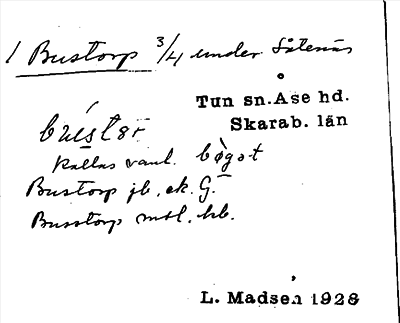 1 Bustorp 3/4 under Såtenäs
Tun sn. Åse hd.
Skarab. län
bùstər
Kallas vanl. bø̀gət
Bustorp jb, ek. G.
Busstorp mtl. kb.
L. Madsen 1928